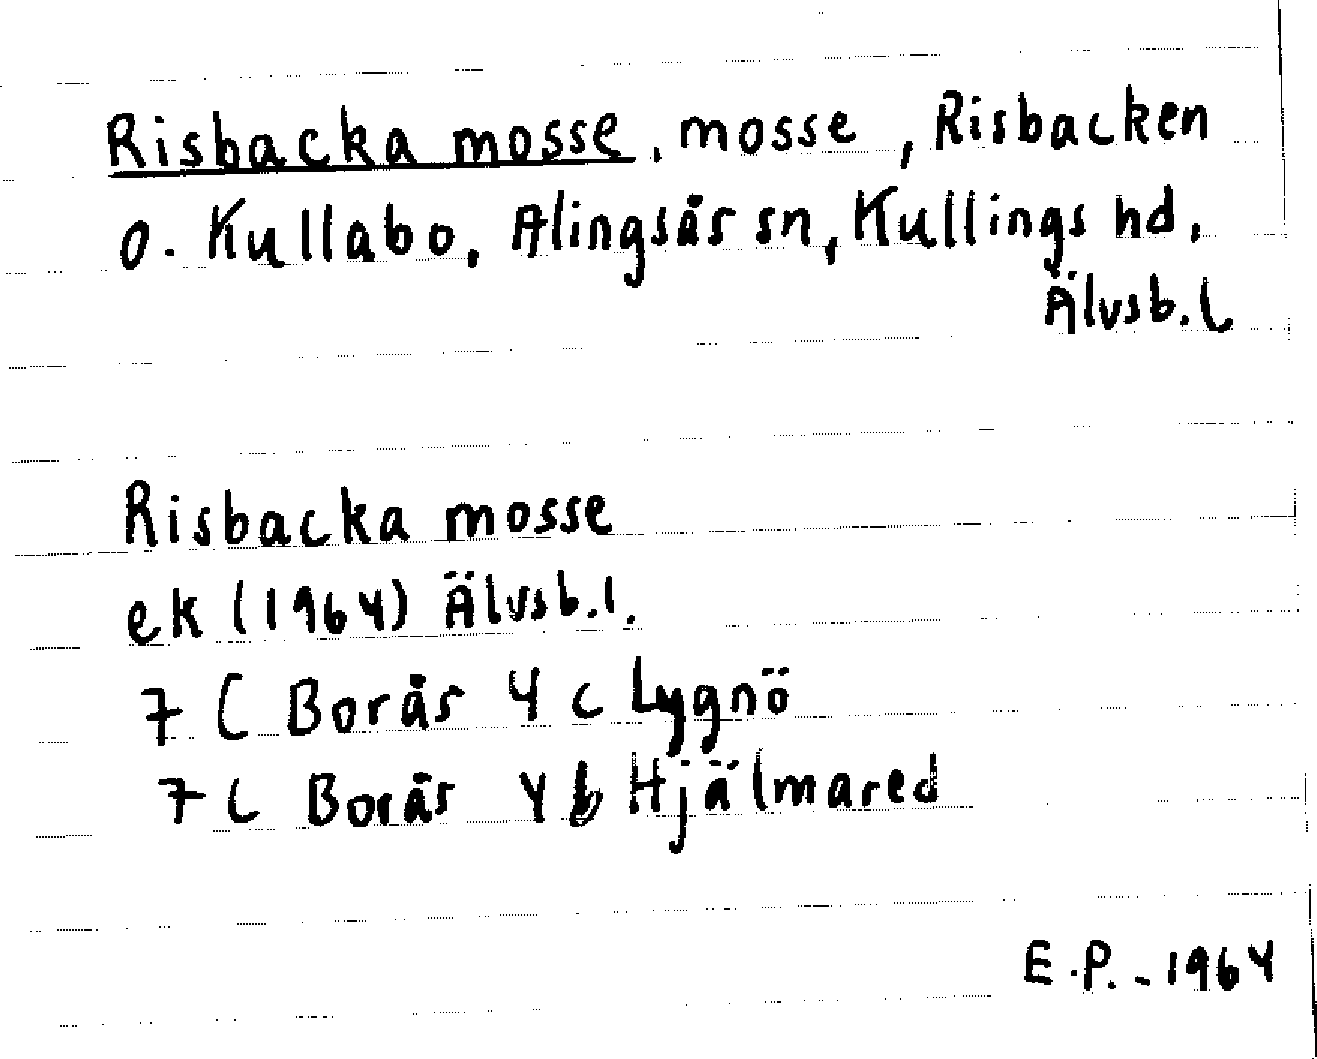 Risbacka mosse, mosse, Risbacken
o. Kullabo, Alingsås sn, Kullings hd,
Älvsb. l
Risbacka mosse
ek (1964) Älvsb. l.
7 C Borås 4 c Lygnö
7 C Borås 4 b Hjälmared
E.P. - 1964